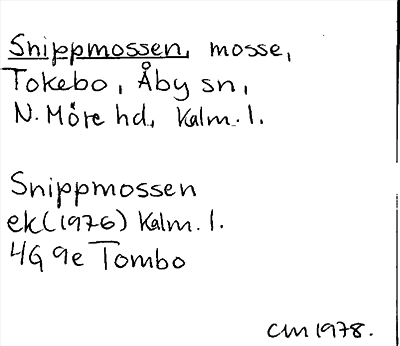 Snippmossen, mosse,
Tokebo, Åby sn,
N. Möre hd, Kalm. l.
Snippmossen
ek (1976) Kalm. l.
4G 9e Tombo
CM 1978.